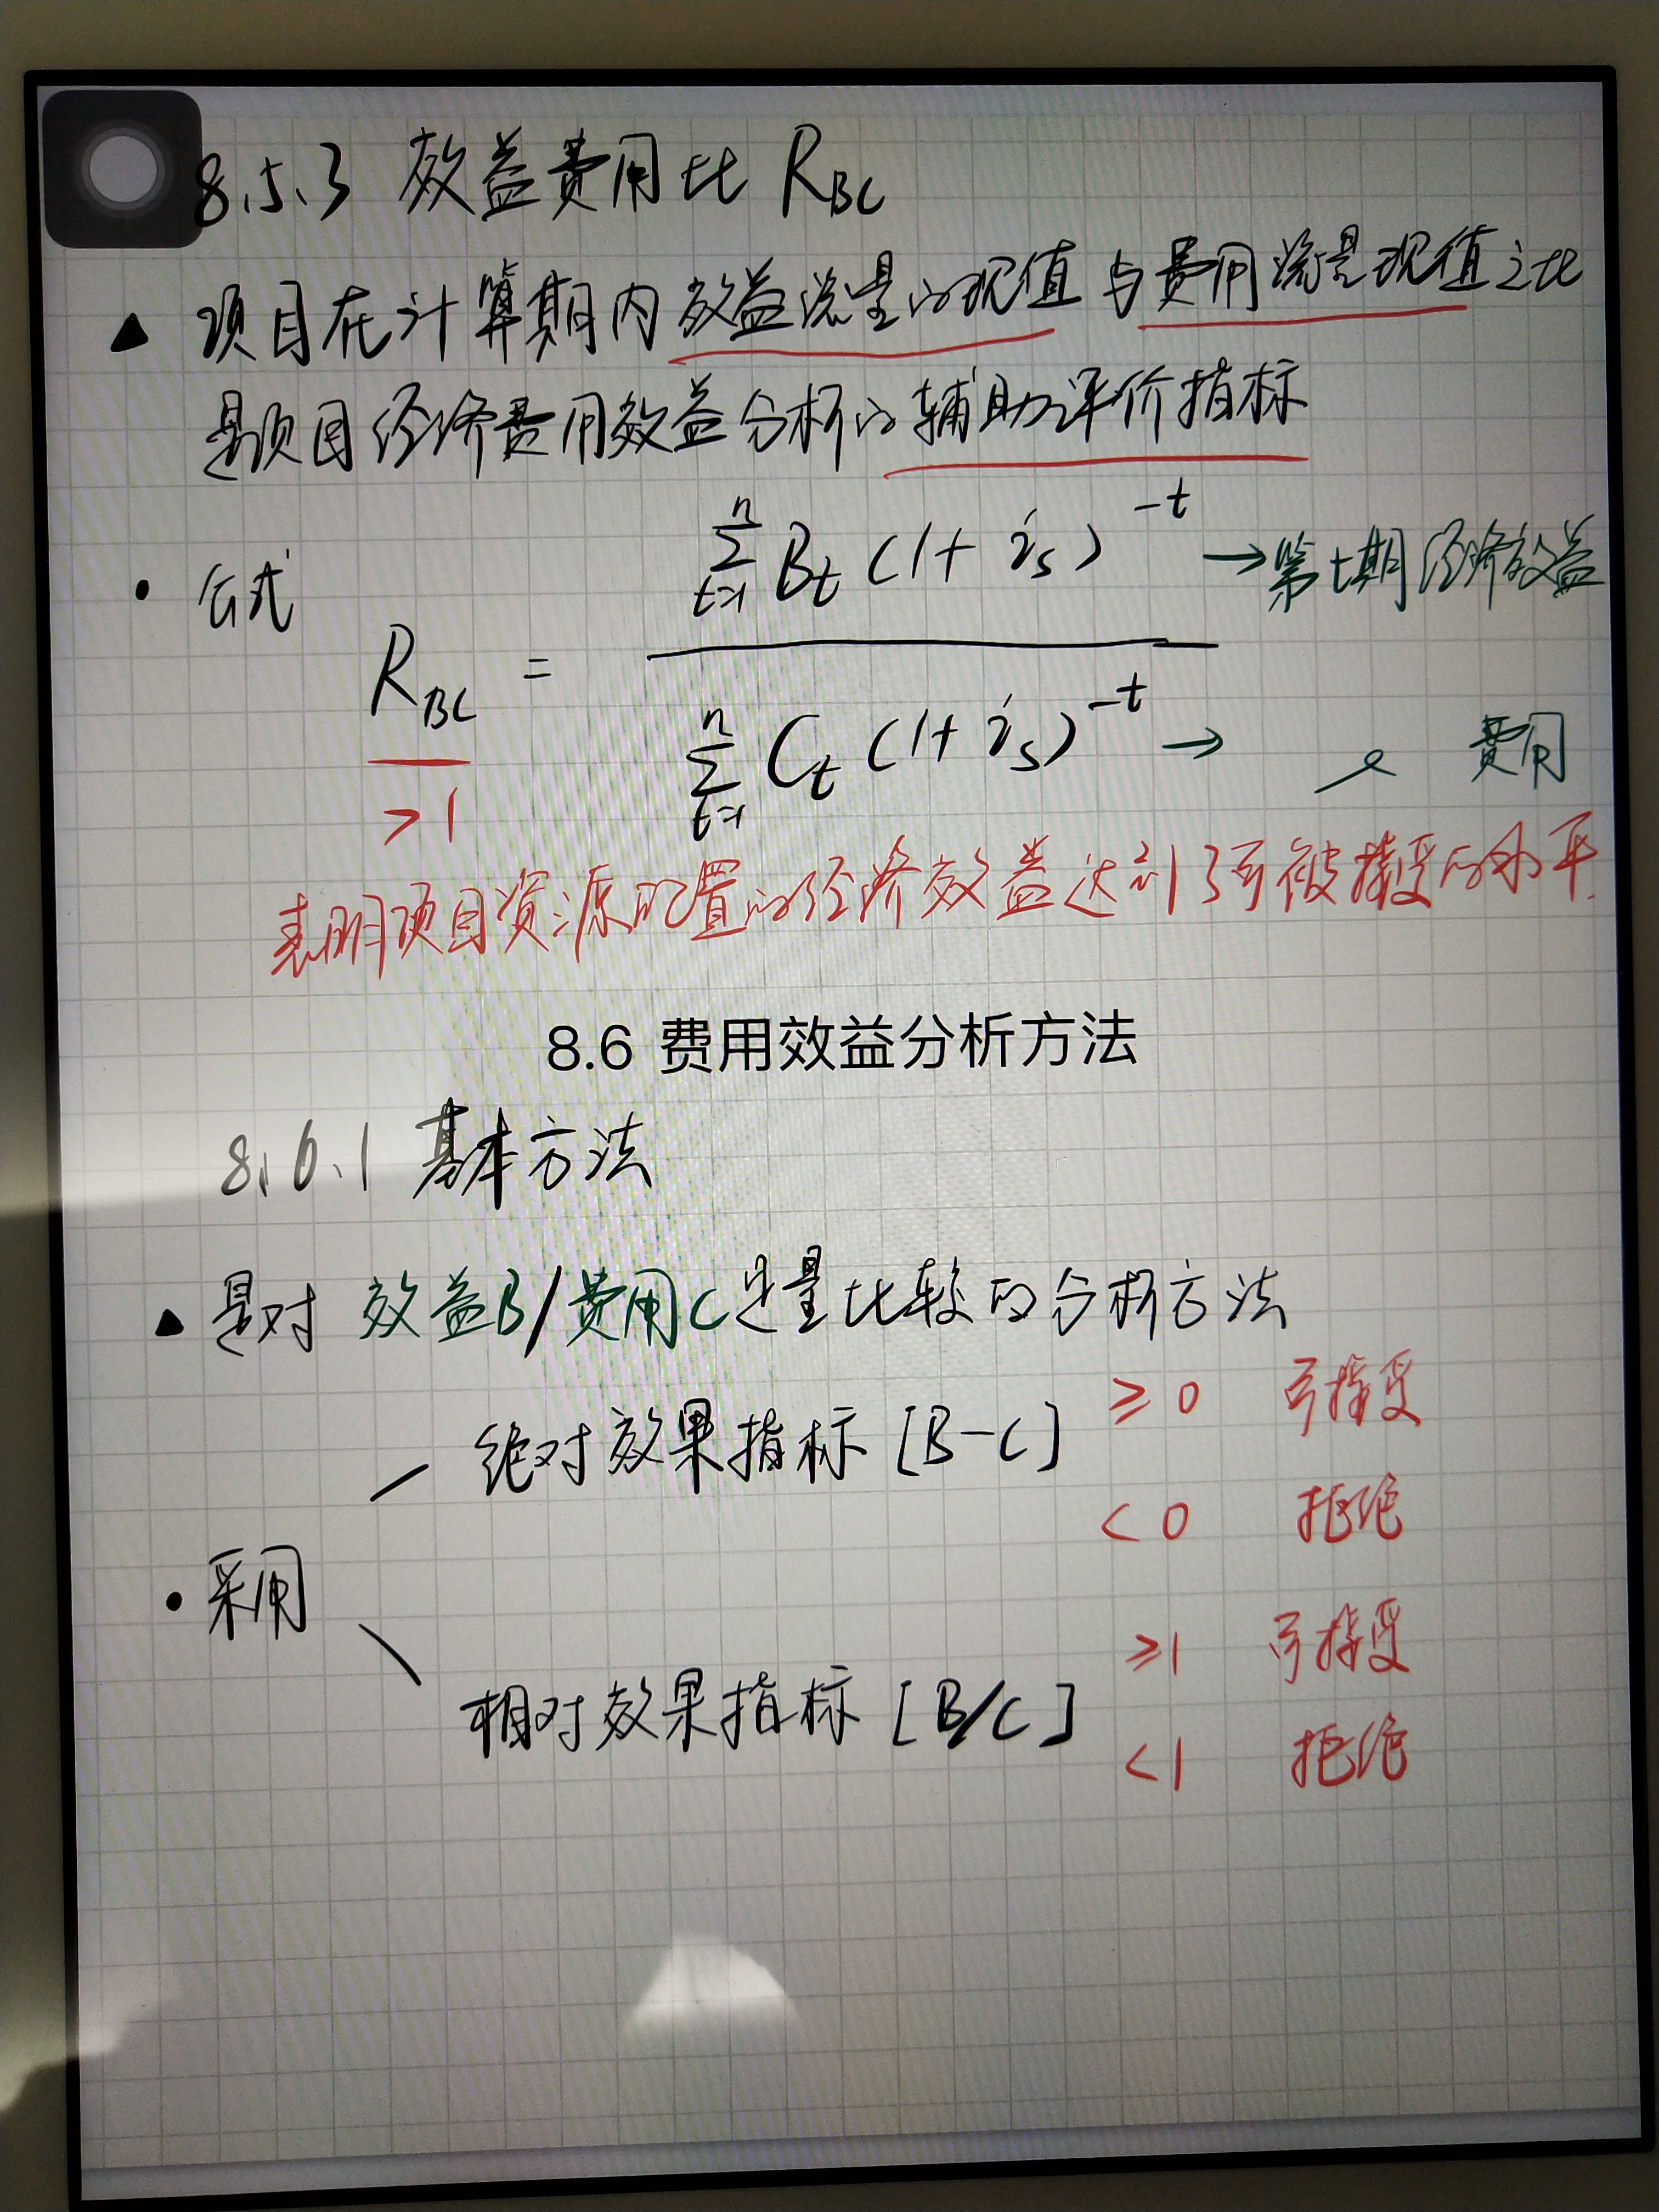 8.5.3 效益费用比 R_BC
▲ 项目在计算期内效益流量的现值与费用流量现值之比
是项目经济费用效益分析的辅助评价指标
• 公式
R_BC = \frac{\sum_{t=1}^{n} B_t (1+i_s)^{-t}}{\sum_{t=1}^{n} C_t (1+i_s)^{-t}}
→第t期经济效益
→ 费用
>1
表明项目资源配置的经济效益达到了可被接受的水平.
8.6 费用效益分析方法
8.6.1 基本方法
▲ 是对 效益B/费用C定量比较的分析方法
绝对效果指标 [B-C] ≥0 可接受
<0 拒绝
• 采用
相对效果指标 [B/C] ≥1 可接受
<1 拒绝